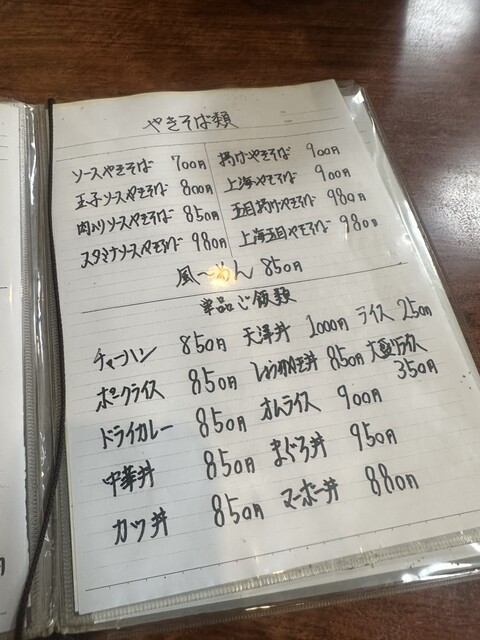 やきそば類
ソースやきそば 700円 揚げやきそば 900円
玉子ソースやきそば 800円 上海やきそば 900円
肉入りソースやきそば 850円 五目揚げやきそば 980円
スタミナソースやきそば 980円 上海五目やきそば 980円
風〜めん 850円
単品ご飯類
チャーハン 850円 天津丼 1000円 ライス 250円
ポークライス 850円 しょうが焼き丼 850円 大盛りライス 350円
ドライカレー 850円 オムライス 900円
中華丼 850円 まぐろ丼 950円
カツ丼 850円 マーボー丼 880円
円